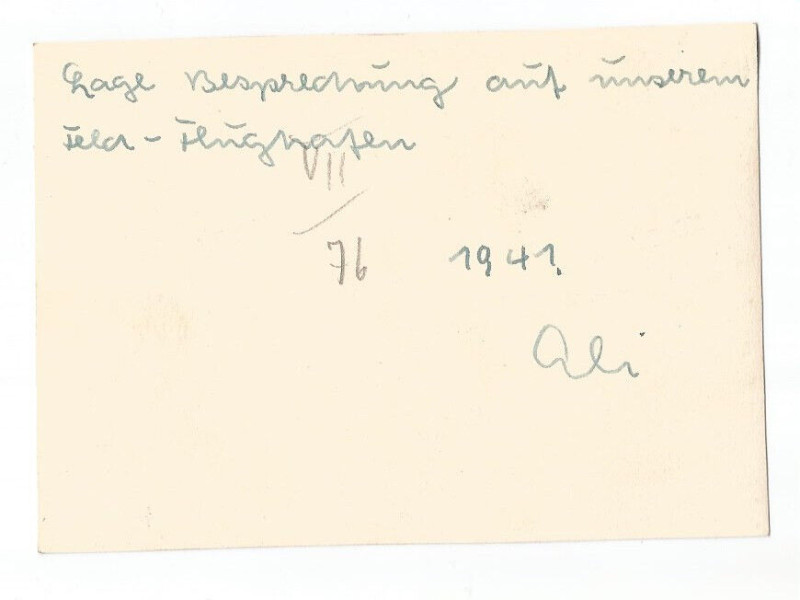 Lage Besprechung auf unserem
Feld-Flughafen
VII
/
76
1941.
Ali